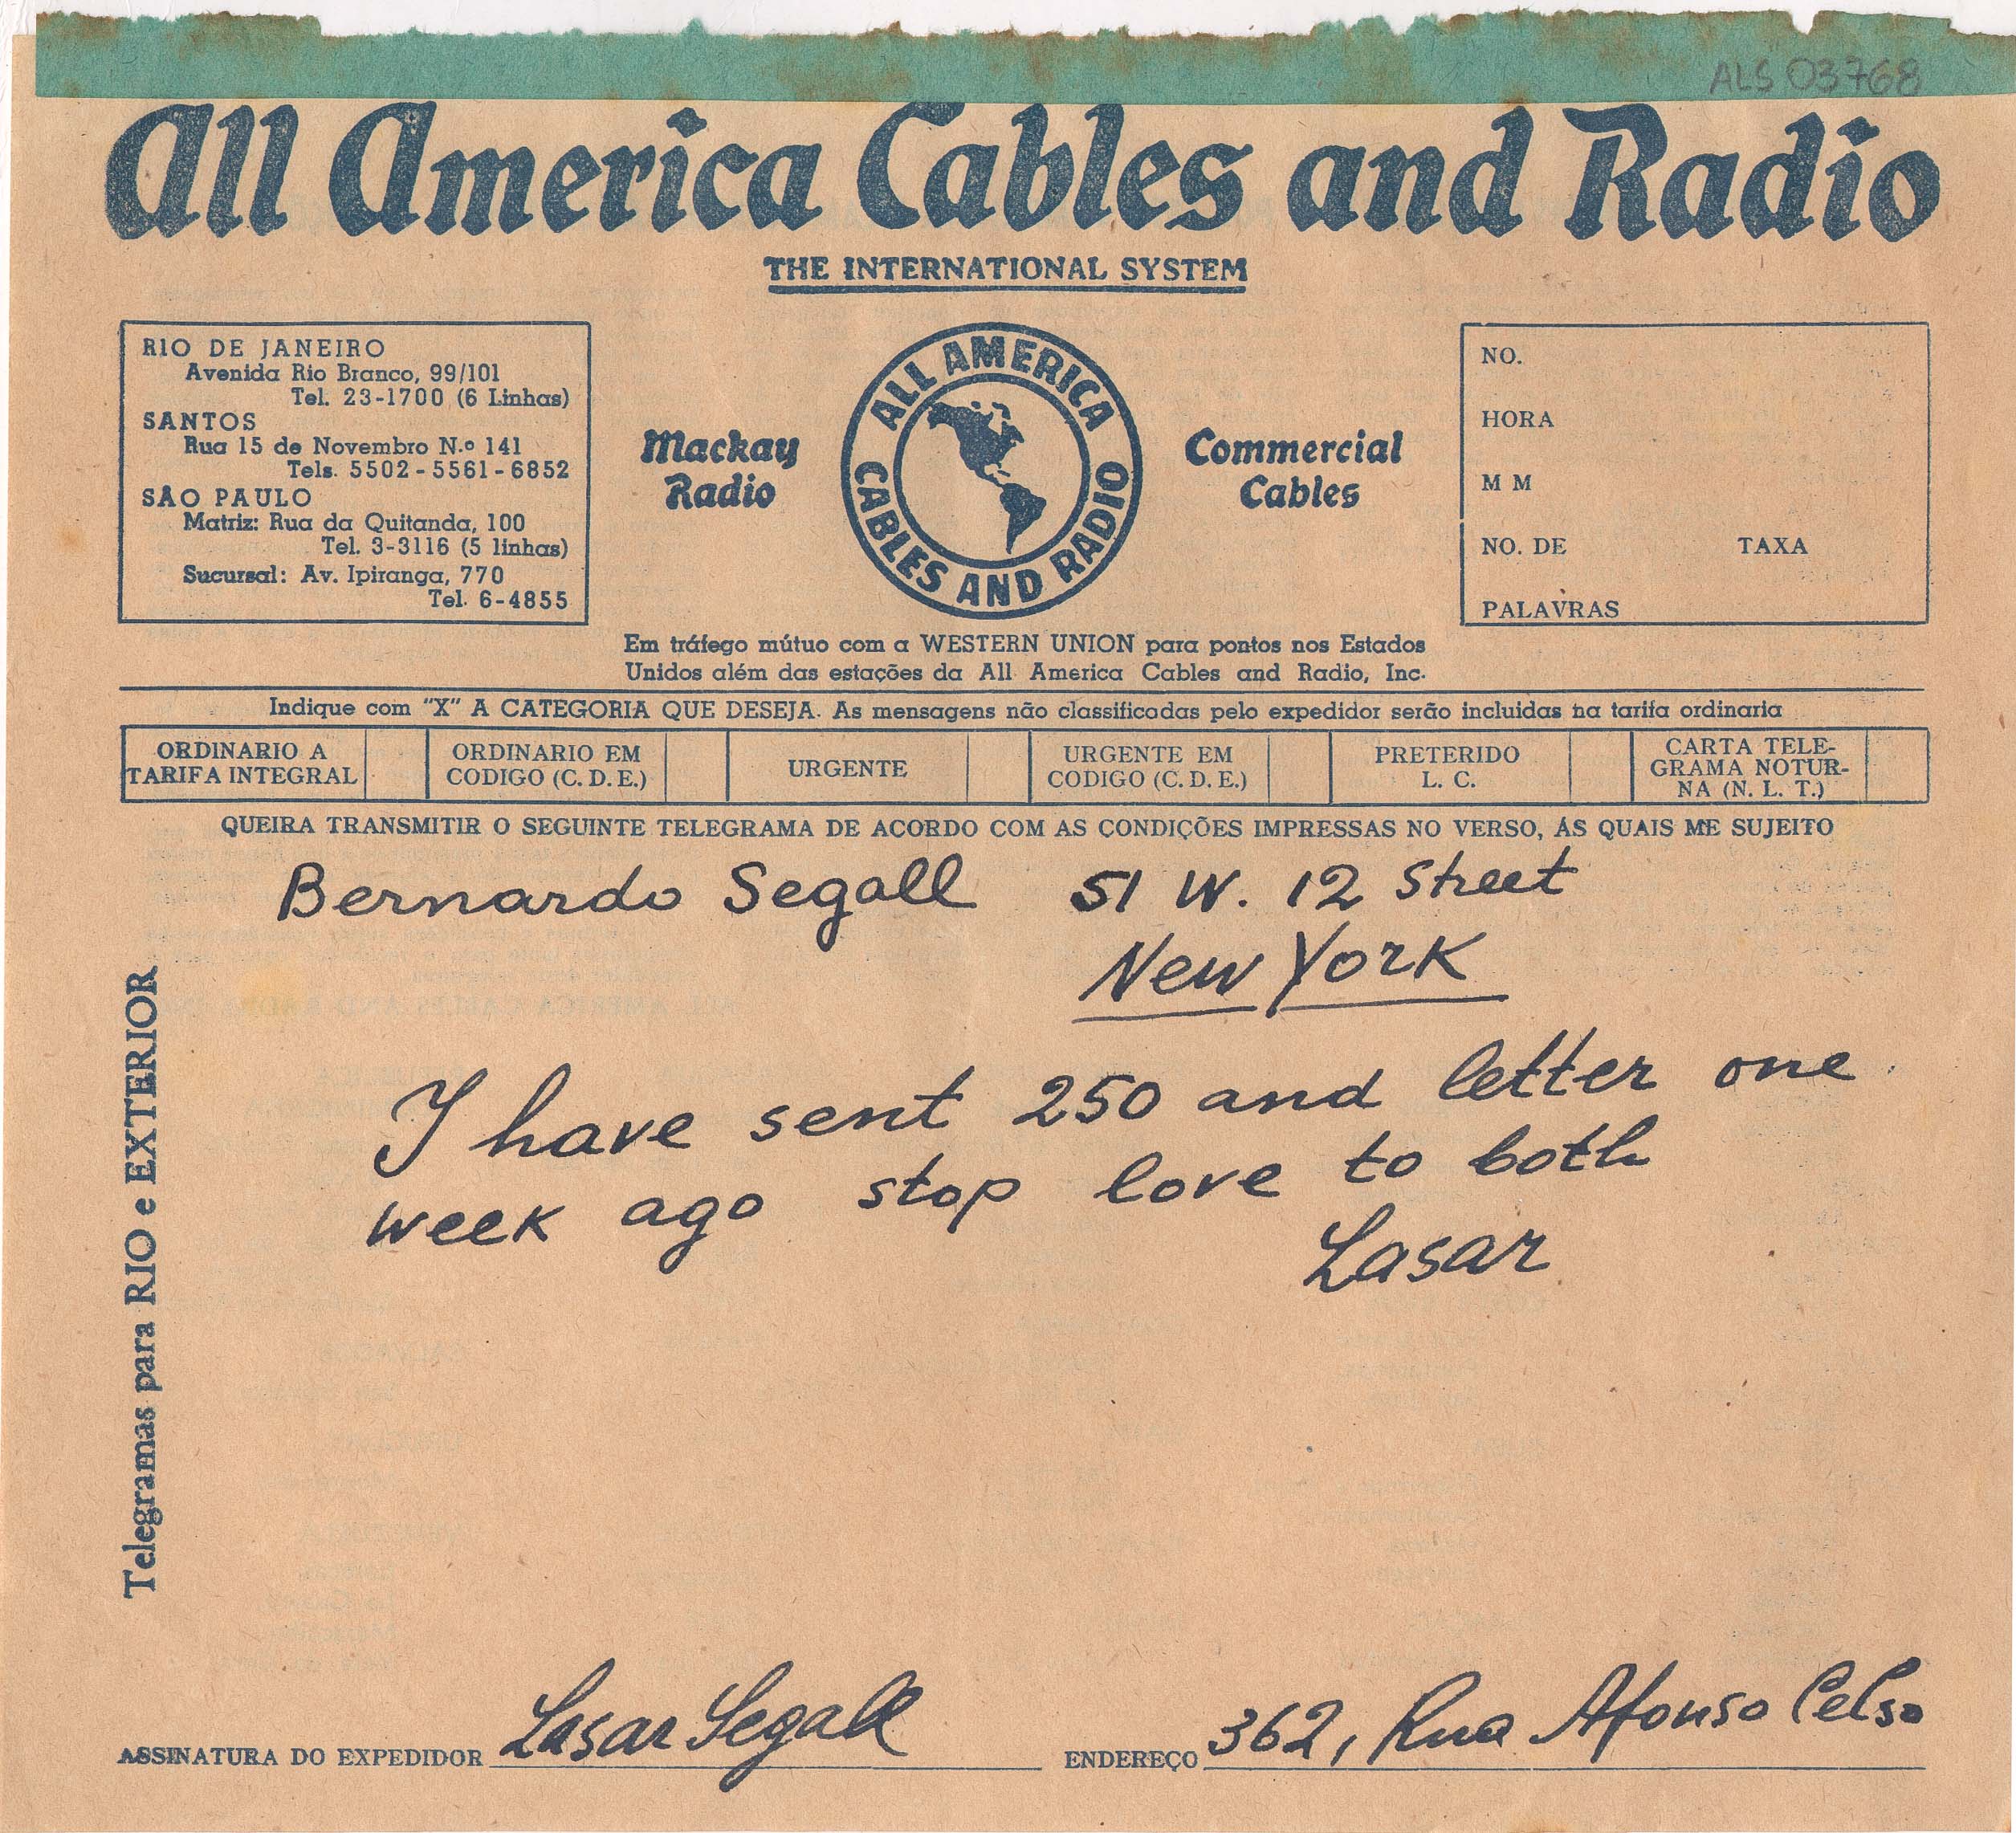 ALS 03768
All America Cables and Radio
THE INTERNATIONAL SYSTEM
RIO DE JANEIRO
Avenida Rio Branco, 99/101
Tel. 23-1700 (6 Linhas)
SANTOS
Rua 15 de Novembro N.º 141
Tels. 5502-5561-6852
SÃO PAULO
Matriz: Rua da Quitanda, 100
Tel. 3-3116 (5 linhas)
Sucursal: Av. Ipiranga, 770
Tel. 6-4855
Mackay
Radio
ALL AMERICA
CABLES AND RADIO
Commercial
Cables
NO.
HORA
M M
NO. DE TAXA
PALAVRAS
Em tráfego mútuo com a WESTERN UNION para pontos nos Estados
Unidos além das estações da All America Cables and Radio, Inc.
Indique com "X" A CATEGORIA QUE DESEJA. As mensagens não classificadas pelo expedidor serão incluidas na tarifa ordinaria
ORDINARIO A
TARIFA INTEGRAL
ORDINARIO EM
CODIGO (C. D. E.)
URGENTE
URGENTE EM
CODIGO (C. D. E.)
PRETERIDO
L. C.
CARTA TELE-
GRAMA NOTUR-
NA (N. L. T.)
QUEIRA TRANSMITIR O SEGUINTE TELEGRAMA DE ACORDO COM AS CONDIÇÕES IMPRESSAS NO VERSO, ÁS QUAIS ME SUJEITO
Bernardo Segall 51 W. 12 Street
New York
I have sent 250 and letter one
week ago stop love to both
Lasar
Telegramas para RIO e EXTERIOR
ASSINATURA DO EXPEDIDOR Lasar Segall ENDEREÇO 362, Rua Afonso Celso